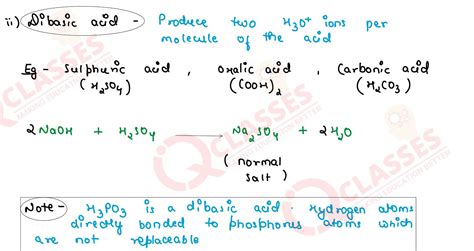 ii) Dibasic acid - Produce two H₃O⁺ ions per
molecule of the acid
Eg - Sulphuric acid , Oxalic acid , Carbonic acid
(H₂SO₄) (COOH)₂ (H₂CO₃)
2NaOH + H₂SO₄ → Na₂SO₄ + 2H₂O
( normal
salt )
Note - H₃PO₃ is a dibasic acid . Hydrogen atoms
directly bonded to phosphorus atoms which
are not replaceable